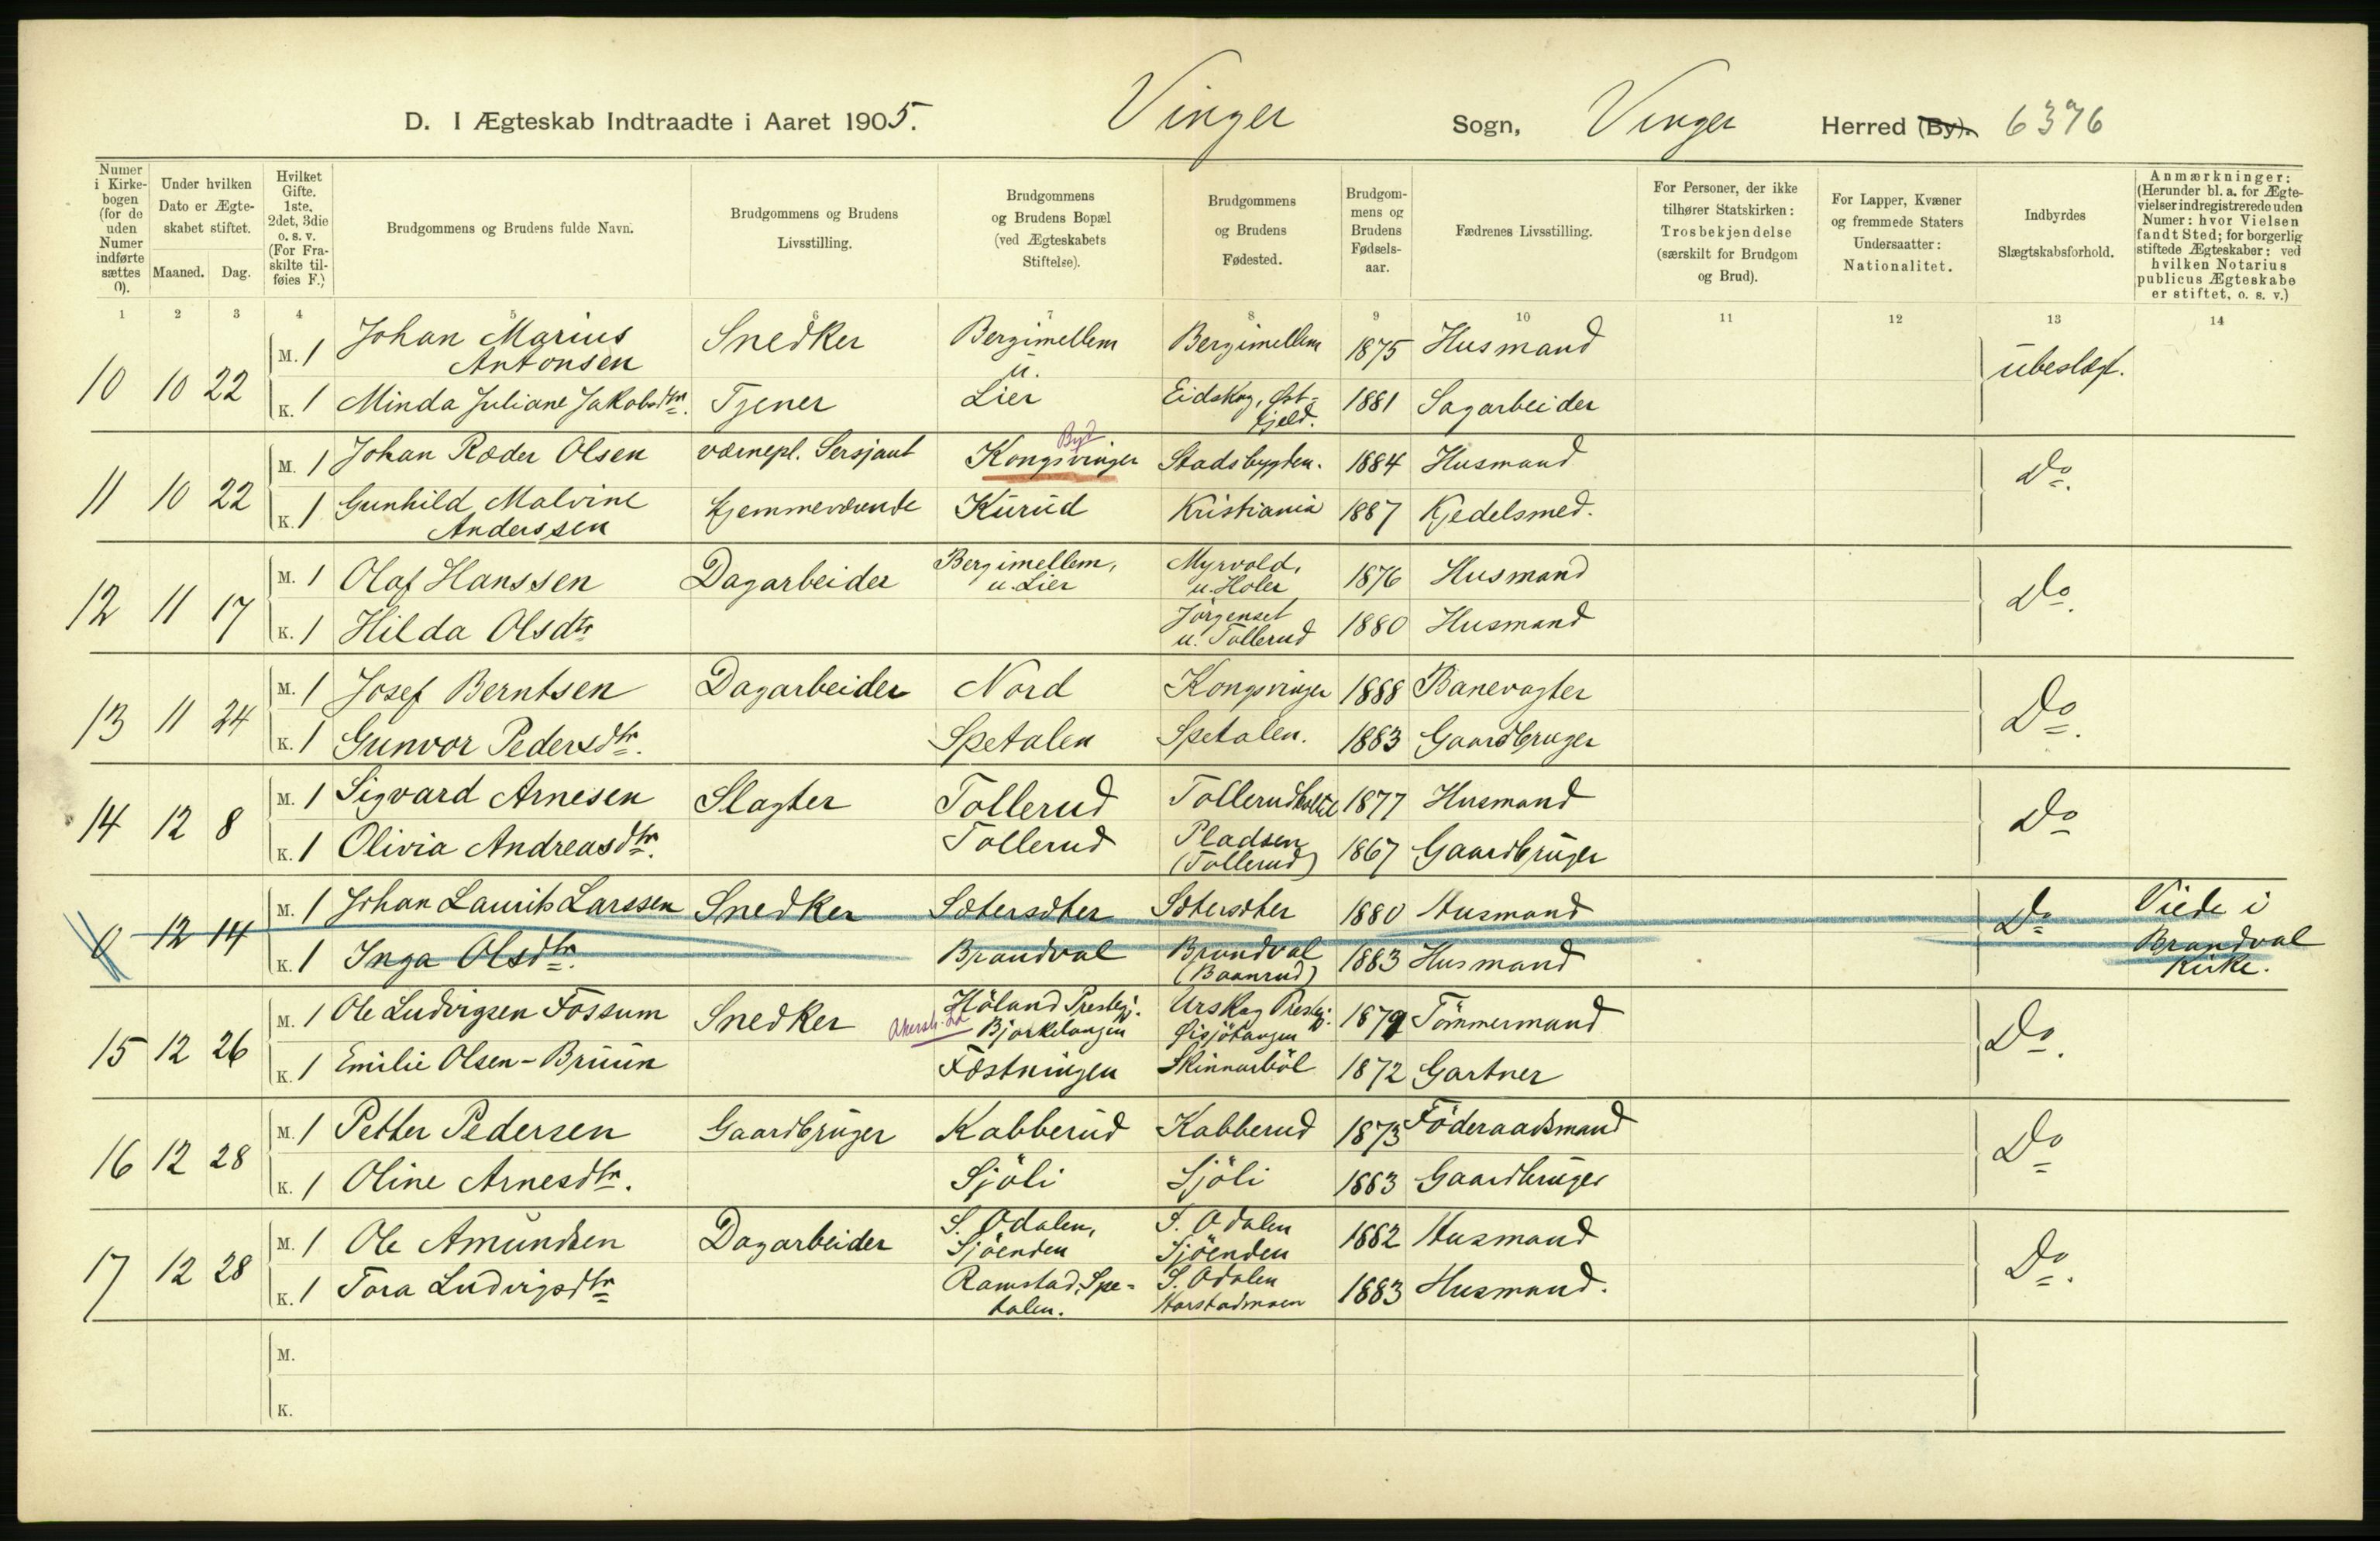 D. I Ægteskab Indtraadte i Aaret 1905. Vinger Sogn, Vinger Herred (By). 6376
Numer i Kirkebogen (for de uden Numer indførte sættes 0).
Under hvilken Dato er Ægteskabet stiftet.
Maaned. Dag.
Hvilket Gifte. 1ste, 2det, 3die o. s. v. (For Fraskilte tilføies F.)
Brudgommens og Brudens fulde Navn.
Brudgommens og Brudens Livsstilling.
Brudgommens og Brudens Bopæl (ved Ægteskabets Stiftelse).
Brudgommens og Brudens Fødested.
Brudgommens og Brudens Fødselsaar.
Fædrenes Livsstilling.
For Personer, der ikke tilhører Statskirken: Trosbekjendelse (særskilt for Brudgom og Brud).
For Lapper, Kvæner og fremmede Staters Undersaatter: Nationalitet.
Indbyrdes Slægtskabsforhold.
Anmærkninger: (Herunder bl. a. for Ægtevielser indregistrerede uden Numer: hvor Vielsen fandt Sted; for borgerlig stiftede Ægteskaber: ved hvilken Notarius publicus Ægteskabe er stiftet, o. s. v.)
1 2 3 4 5 6 7 8 9 10 11 12 13 14
10 10 22 M. 1 Johan Marius Antonsen Snedker Bergimellem u. Bergimellem 1875 Husmand ubeslægt.
K. 1 Minda Juliane Jakobsdtr. Tjener Lier Eidskog, Øst-fjeld. 1881 Sagarbeider
11 10 22 M. 1 Johan Ræder Olsen værnepl. Sersjant Kongsvinger By Stadsbygden. 1884 Husmand Do.
K. 1 Gunhild Malvine Anderssen hjemmeværende Kurud Kristiania 1887 Kjedelsmed.
12 11 17 M. 1 Olaf Hanssen Dagarbeider Bergimellem, u. Lier Myrvold, u. Holer 1876 Husmand Do.
K. 1 Hilda Olsdtr Jörgenset u. Tollerud 1880 Husmand
13 11 24 M. 1 Josef Berntsen Dagarbeider Nord Kongsvinger 1888 Banevagter Do.
K. 1 Gunvor Pedersdtr. Spetalen Spetalen. 1883 Gaardbruger
14 12 8 M. 1 Sigvard Arnesen Slagter Tollerud Tollerud 1877 Husmand Do
K. 1 Olivia Andreasdtr. Tollerud Pladsen (Tollerud) 1867 Gaardbruger
0 12 14 M. 1 Johan Laurits Larssen Snedker Sætersæter Sætersæter 1880 Husmand Do Viede i Brandval Kirke.
K. 1 Inga Olsdtr. Brandval Brandval (Baanrud) 1883 Husmand
15 12 26 M. 1 Ole Ludvigsen Fossum Snedker Höland Prestegj. Bjørkelangen Urskog Prestegj. 1879 Tömmermand Do.
K. 1 Emilie Olsen-Bruun Fæstningen Skinnarböl 1872 Gartner
16 12 28 M. 1 Petter Pedersen Gaardbruger Kabberud Kabberud 1873 Föderaadsmand Do
K. 1 Oline Arnesdtr. Sjöli Sjöli 1883 Gaardbruger
17 12 28 M. 1 Ole Amundsen Dagarbeider S. Odalen, Sjöenden S. Odalen Sjöenden 1882 Husmand Do.
K. 1 Tora Ludvigsdtr Ramstad, Spe-talen. S. Odalen Harstadmoen 1883 Husmand.
M.
K.